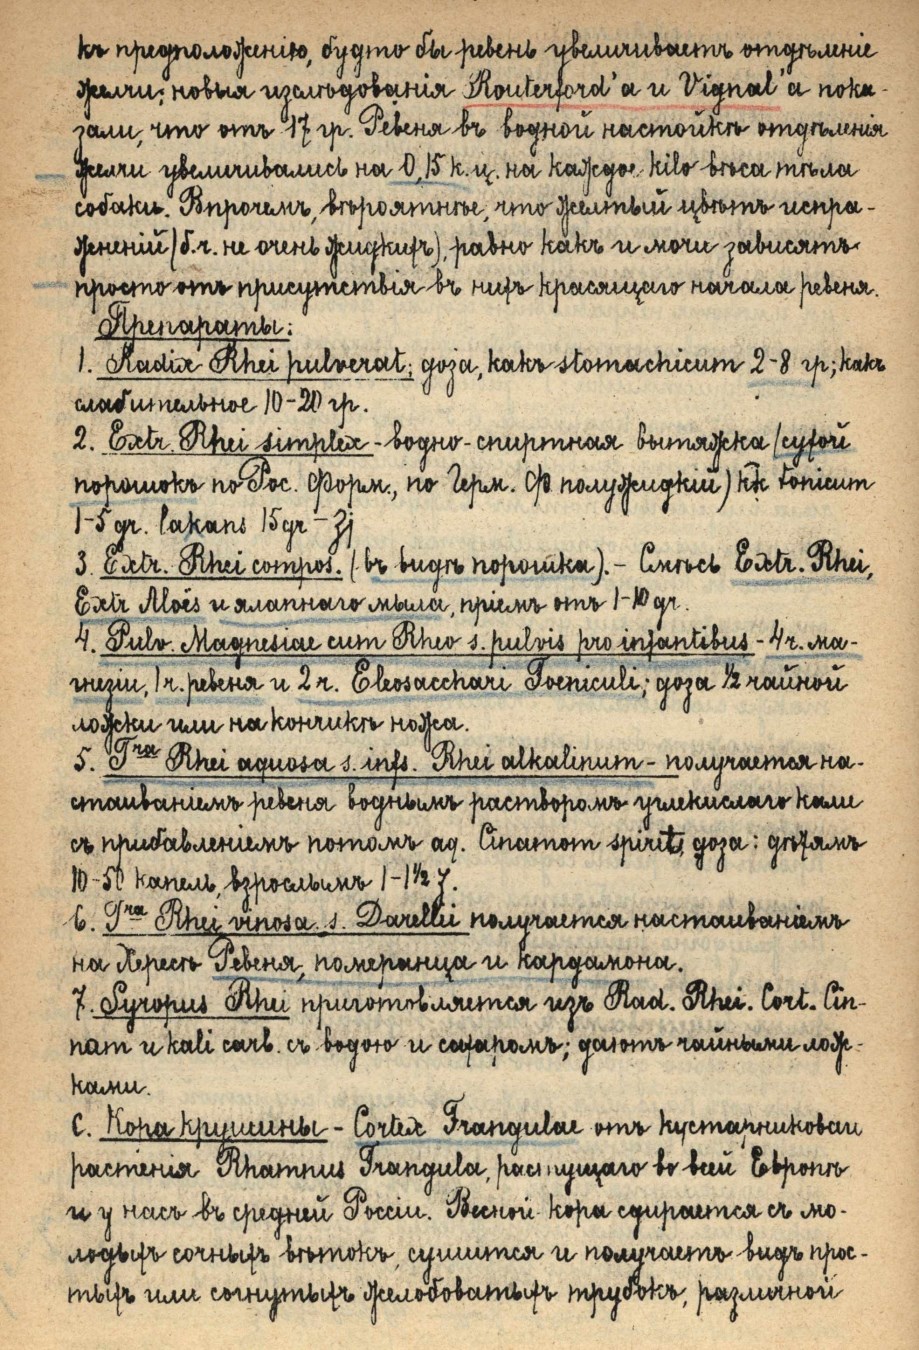 къ предположенію, будто бы ревень увеличиваетъ отдѣленіе
желчи; новыя изслѣдованія Routerford'a и Vignal'a пока-
зали, что отъ 17 гр. Ревеня въ водной настойкѣ отдѣленія
желчи увеличивались на 0,15 к.ц. на каждое kilo вѣса тѣла
собаки. Впрочемъ, вѣроятнѣе, что желтый цвѣтъ испра-
жненій (б.ч. не очень жидкихъ), равно какъ и мочи зависятъ
просто отъ присутствія въ нихъ красящаго начала ревеня.
Препараты:
1. Radix Rhei pulverat; доза, какъ stomachicum 2-8 гр; какъ
слабительное 10-20 гр.
2. Extr. Rhei simplex - водно-спиртная вытяжка (сухой
порошокъ по Рос. Форм., по Герм. Ф. полужидкій) кк tonicum
1-5 gr. laxans 15 gr - ʒj
3. Extr. Rhei compos. (въ видѣ порошка). - Смѣсь Extr. Rhei,
Extr Aloës и ялапнаго мыла, пріемъ отъ 1-10 gr.
4. Pulv. Magnesiae cum Rheo s. pulvis pro infantibus - 4 ч. ма-
гнезіи, 1 ч. ревеня и 2 ч. Eleosacchari Foeniculi; доза ½ чайной
ложки или на кончикѣ ножа.
5. Tra Rhei aquosa s. infs. Rhei alkalinum - получается на-
стаиваніемъ ревеня воднымъ растворомъ углекислаго кали
съ прибавленіемъ потомъ aq. Cinamom spirit, доза: дѣтямъ
10-50 капель, взрослымъ 1-1½ ʒ.
6. Tra Rhei vinosa s. Darellii получается настаиваніемъ
на Хересѣ Ревеня, померанца и кардамона.
7. Syropus Rhei приготовляется изъ Rad. Rhei. Cort. Cin-
nam и kali carb. съ водою и сахаромъ; даютъ чайными лож-
ками.
C. Кора крушины - Cortex Frangulae отъ кустарниковаи
растенія Rhamnus Frangula, растущаго во всей Европѣ
и у насъ въ средней Россіи. Весной кора сдирается съ мо-
лодыхъ сочныхъ вѣтокъ, сушится и получаетъ видъ прос-
тыхъ или согнутыхъ желобоватыхъ трубокъ, различной